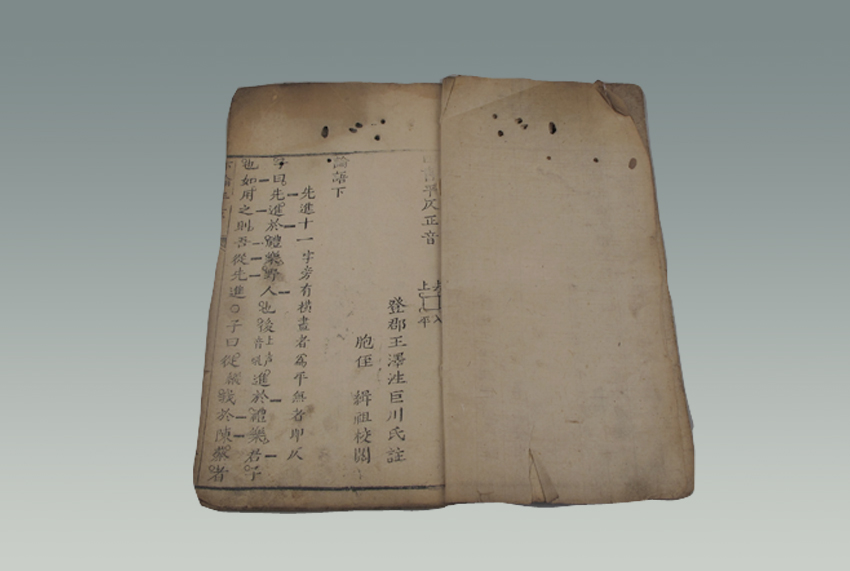 四書平仄正音
上 去
平 入
登郡王澤泩巨川氏註
胞侄 緝祖校閱
論語下
先進十一 字旁有橫畫者為平無者即仄
子曰先進於禮樂野人也後上声音吼進於禮樂君子
也如用之則吾從先進○子曰從我於陳蔡者